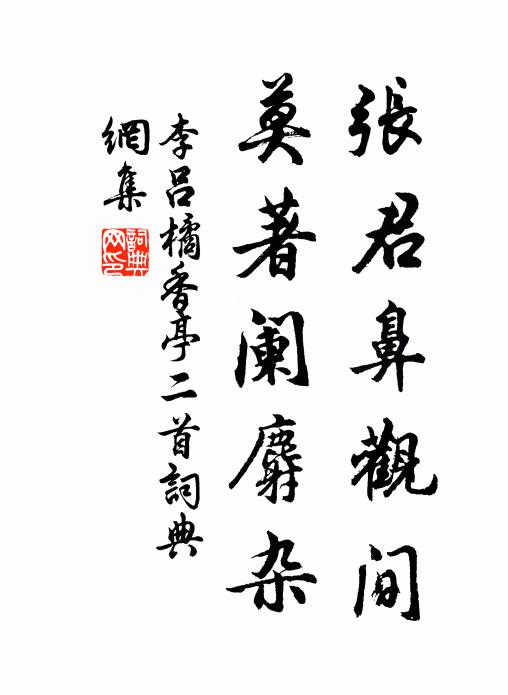 張君鼻觀间
莫著阑麝杂
李呂橘香亭二首詞典
網集
詞典网印